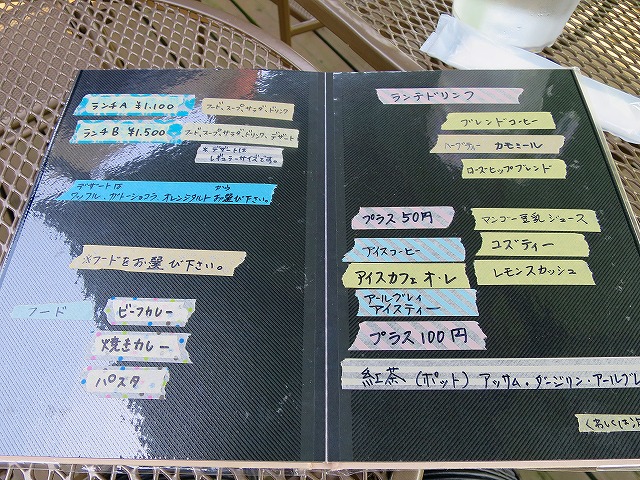 ランチA ¥1.100
フード、スープ、サラダ、ドリンク
ランチB ¥1.500
フード、スープ、サラダ、ドリンク、デザート
* デザートは
レギュラーサイズです。
デザートは
ワッフル、ガトーショコラ、オレンジタルトからお選び下さい。
※フードをお選び下さい。
フード
ビーフカレー
焼きカレー
パスタ
ランチドリンク
ブレンドコーヒー
ハーブティー カモミール
ローズヒップブレンド
プラス50円
マンゴー豆乳ジュース
アイスコーヒー
ユズティー
アイスカフェオ・レ
レモンスカッシュ
アールグレイ
アイスティー
プラス100円
紅茶(ポット)アッサム・ダージリン・アールグレ
くわしくは